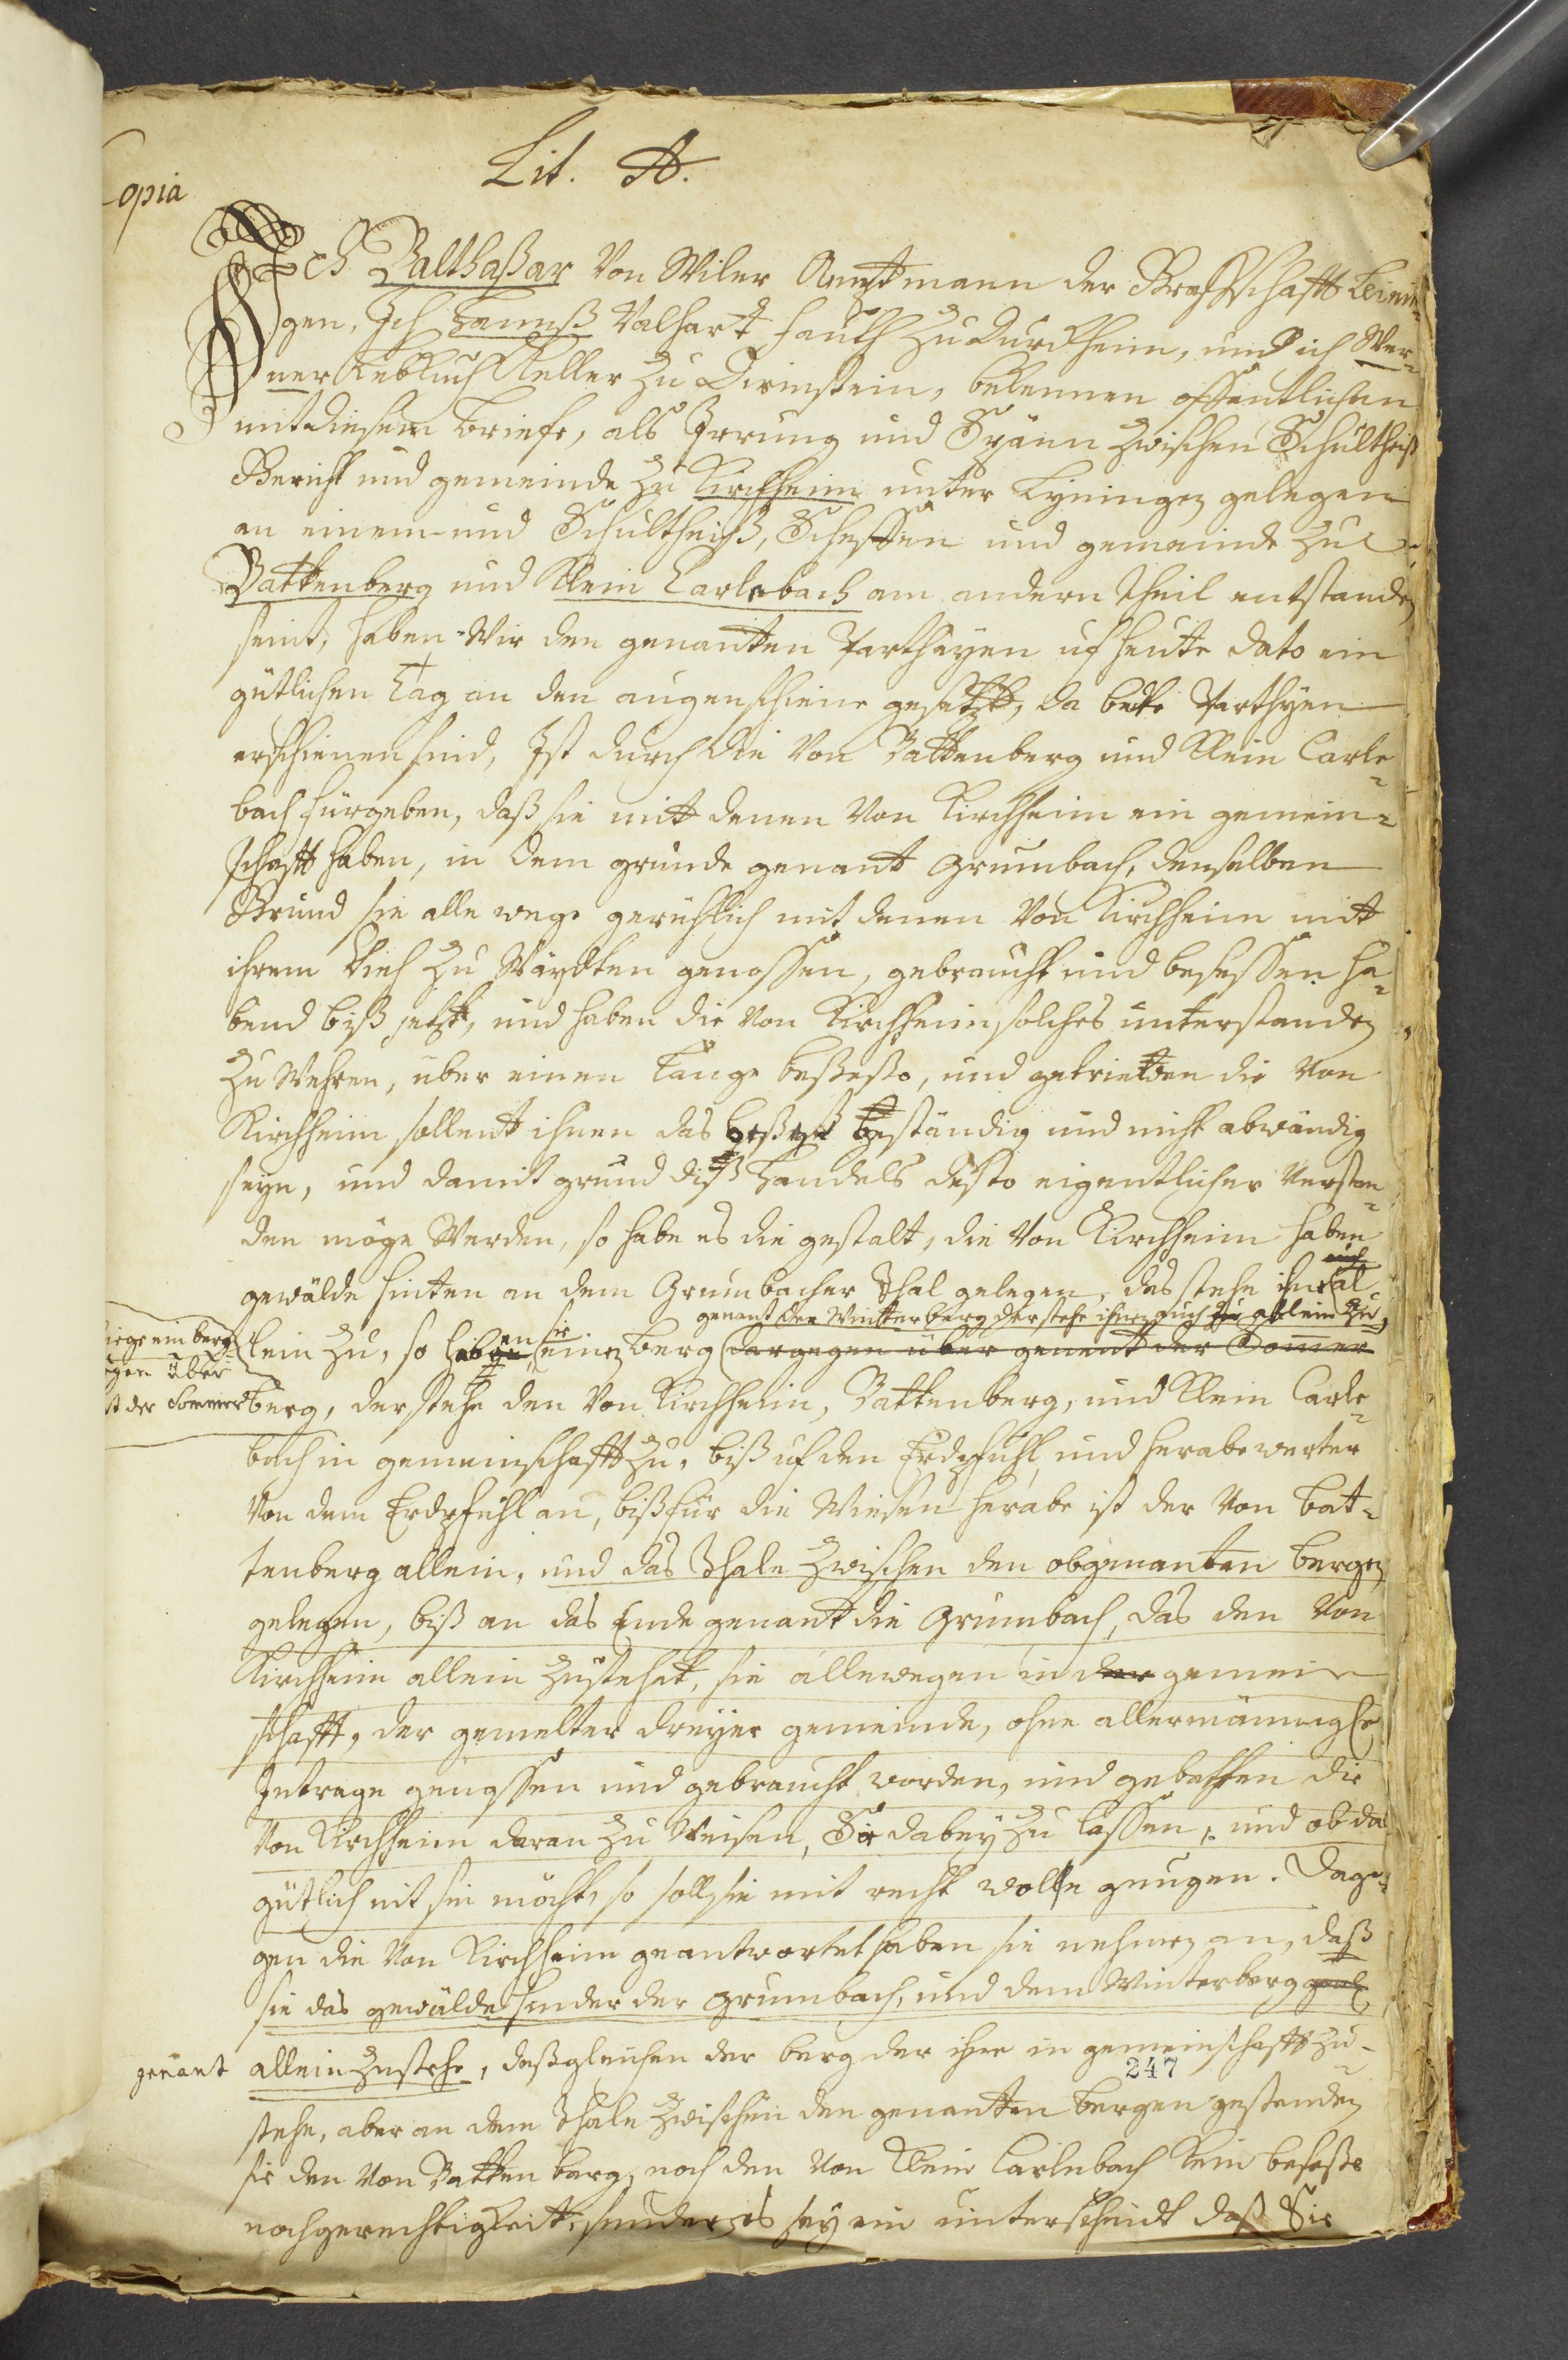 Copia
Lit. A.
Ich Balthaßar Von Wiler Amptmann der Graffschafft Leinin¬
gen, Ich Hannß Valhart Fauth zu Durckheim, und ich Wer¬
ner Keller zu Dirmstein, bekennen offentlichen
mit diesem briefe, als Irrung und Spänn zwischen Schultheiß
Gericht und gemeinde zu Kirchheim unter Lyningen gelegen
an einem und Schultheiß, Scheffen und gemeinde zu
Battenberg und Klein Carlebach am andern theil entstanden
seint, haben Wir den genanten Partheyen uf heute dato ein
gütlichen Tag an den augenscheine gesetzt, da bede Partheyen
erschienen sind, Ist durch die Von Battenberg und Klein Carle¬
bach fürgeben, daß sie mit denen Von Kirchheim ein gemein¬
schafft haben, in dem grunde genant Grumbach, denselben
Grund sie alle wege geruhlich mit denen Von Kirchheim mit
ihrem Vieh zu Wäydten genossen, gebraucht und besessen ha¬
bend biß jetzt, und haben die Von Kirchheim solches unterstanden
zu Wehren, über einen lange beßeße, und die Von
Kirchheim sollent ihnen das beständig und nicht abwändig
seyn, und damit grund diß handels desto eigentlicher verstan¬
den möge Werden, so habe es die gestalt, die Von Kirchheim haben
gewälde hinten an dem Grumbacher Thal gelegen, das stehe ihne auch al¬
genant der Winterberg der stehe ihnen auch zu allein zu,
lein zu, so haben sie einen Berg dargegen über genent der Sommer
liege ein berg
gen über
t der Sommer
berg, der stehe den Von Kirchheim, Battenberg, und Klein Carle¬
bach in gemeinschafft zu, biß uf den Erdpfuhl, und herabe werter
Von dem Erdpfuhl an, biß für die Wiesen herabe ist der Von Bat¬
tenberg allein, und das Thale zwischen den obgenanten bergen
gelegen, biß an das Ende genant die Grumbach, das den Von
Kirchheim allein zustehet, sie allewegen in der gemein
schafft, der gemelter dreyer gemeinde, ohne allermänniglichs
Intrage genossen und gebraucht worden, und gebetten die
Von Kirchheim daran zu Weisen, Sie dabey zu lassen, und ob da
gütlich nit sin möcht, so soll sie mit recht wolle gnugen. Dage¬
gen die Von Kirchheim geantwortet haben sie nehmen an, daß
sie das gewälde hinder der Grumbach, und dem Winterberg
genant allein zustehe, deßgleichen der berg der ihne in gemeinschafft zu¬
247
stehe, aber an dem Thale zwischen den genanten bergen gestenden
sie den Von Battenberg, noch den Von Klein Carlebach kein beseße
noch gerechtigkeit, sunder es sey ein unterscheidt daß Sie